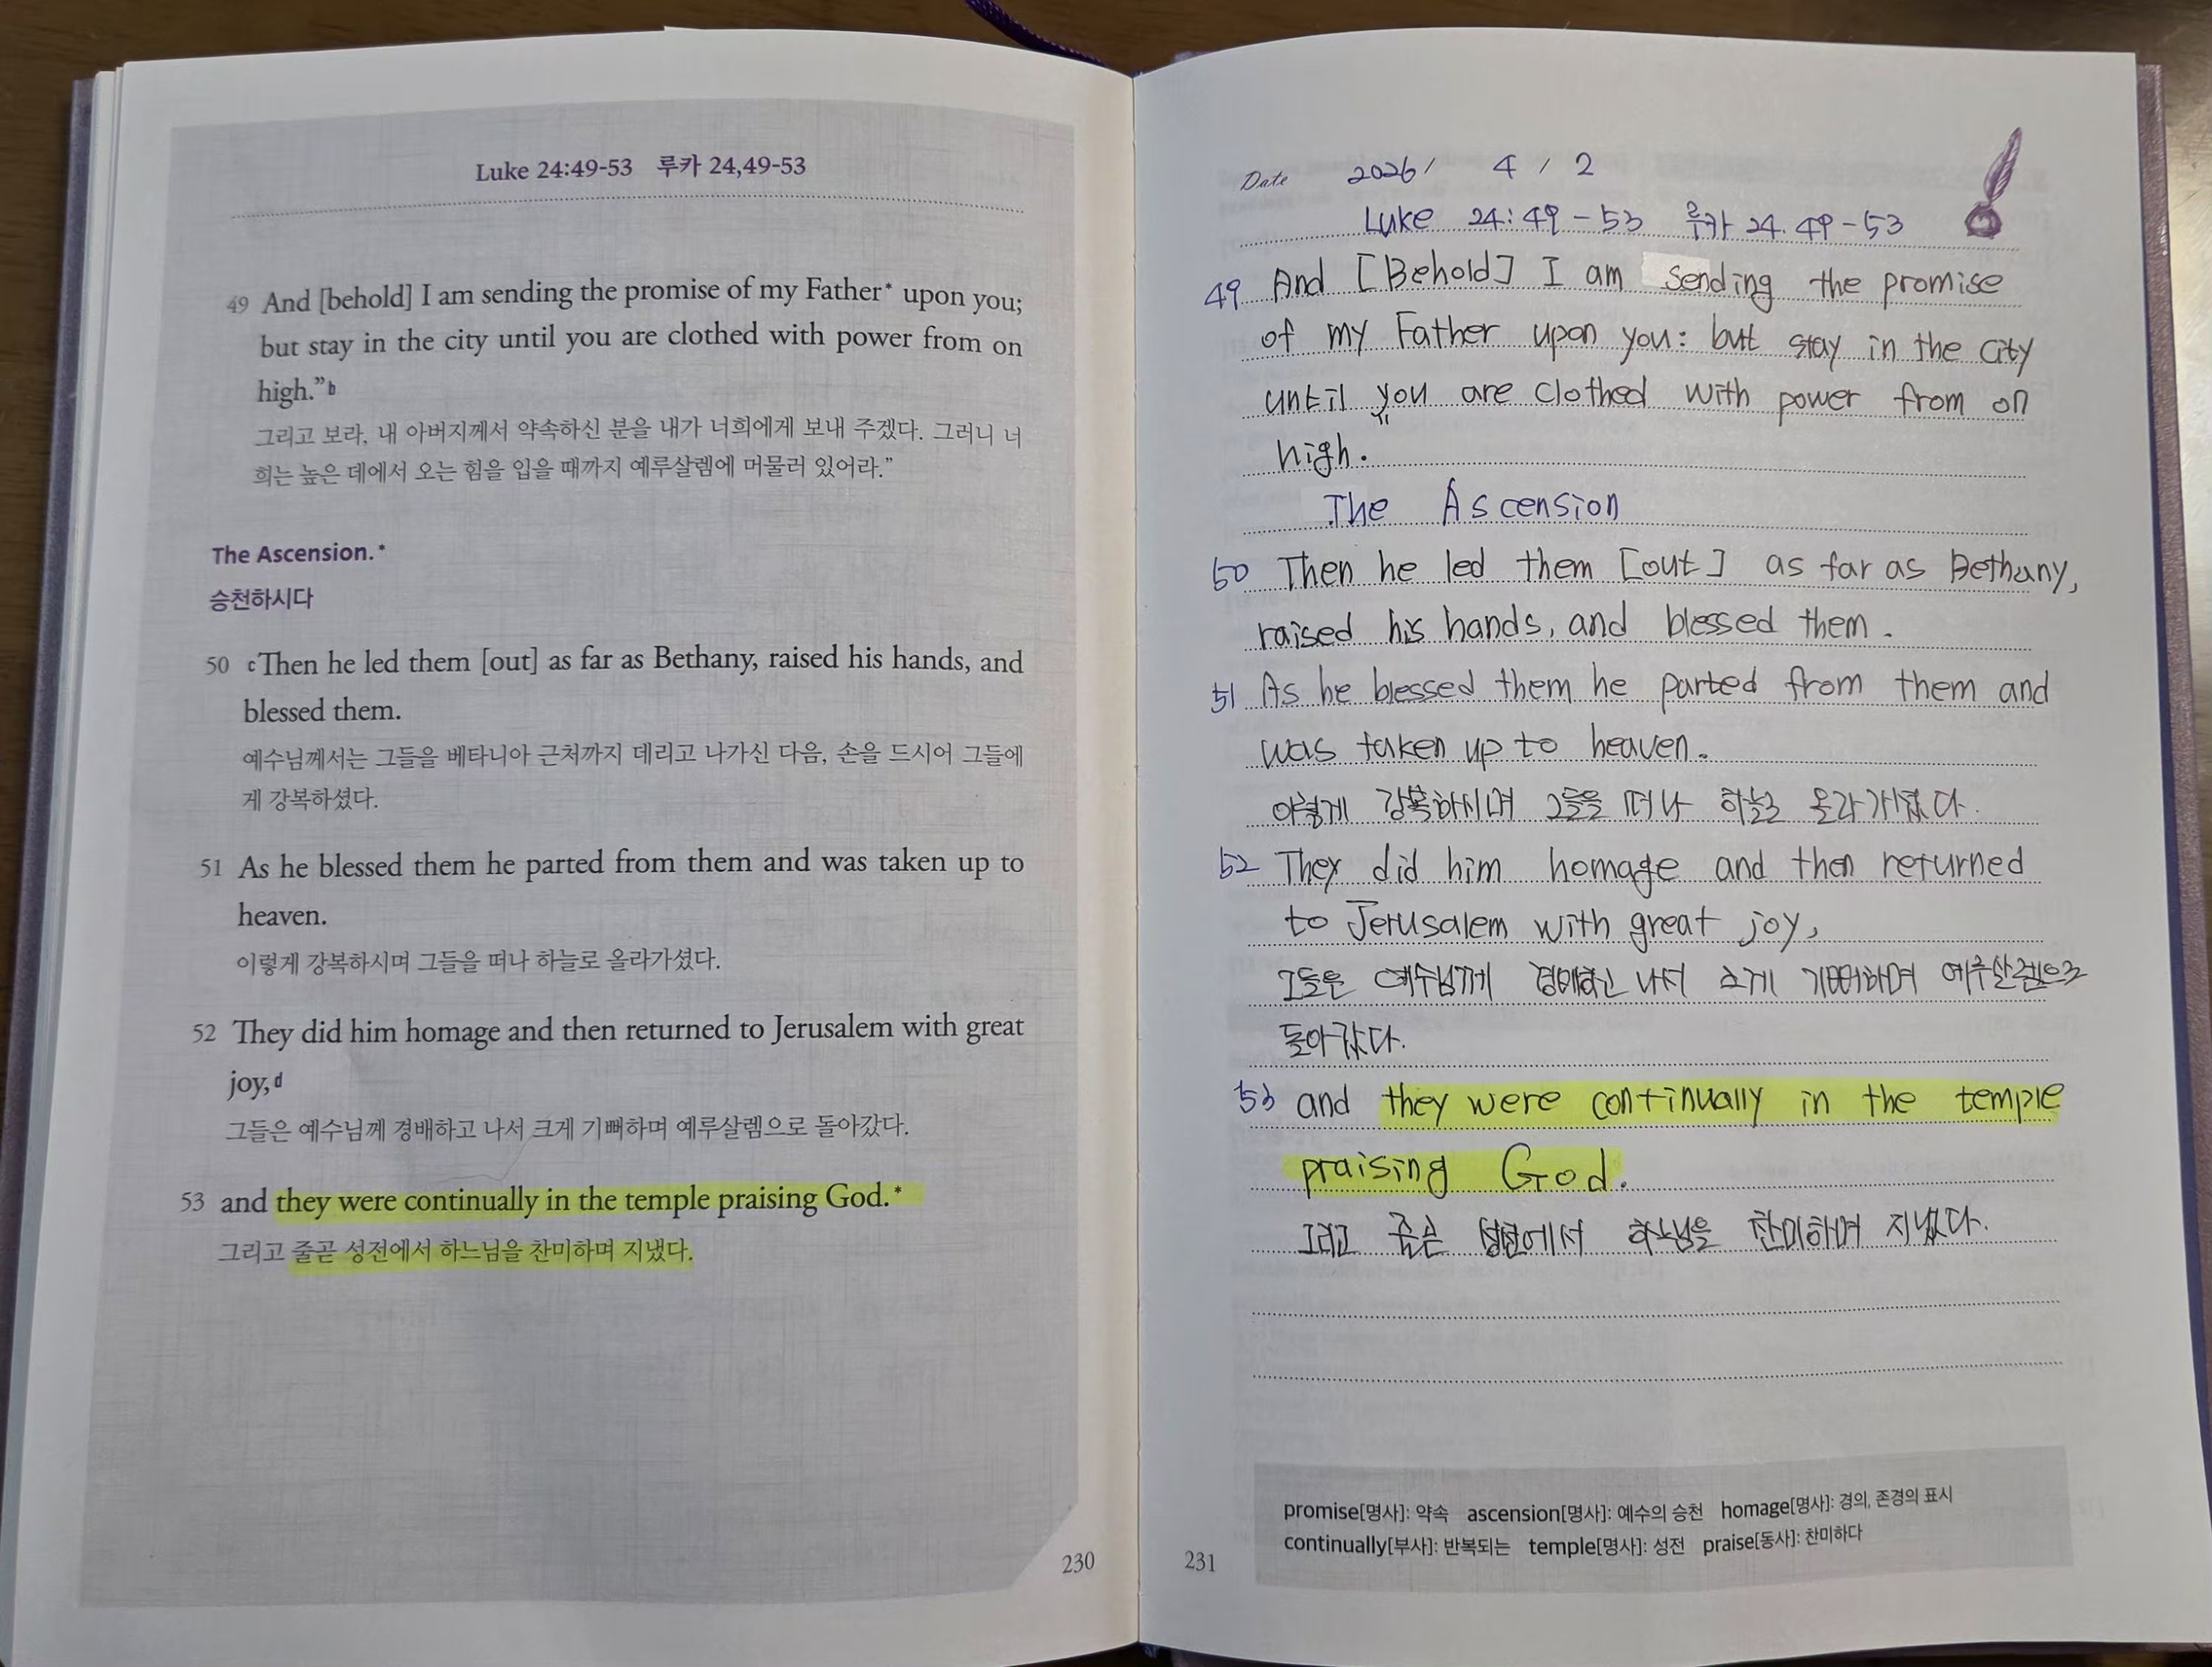 Luke 24:49-53 루카 24,49-53
49 And [behold] I am sending the promise of my Father* upon you;
but stay in the city until you are clothed with power from on
high.” b
그리고 보라, 내 아버지께서 약속하신 분을 내가 너희에게 보내 주겠다. 그러니 너
희는 높은 데에서 오는 힘을 입을 때까지 예루살렘에 머물러 있어라.”
The Ascension.*
승천하시다
50 c Then he led them [out] as far as Bethany, raised his hands, and
blessed them.
예수님께서는 그들을 베타니아 근처까지 데리고 나가신 다음, 손을 드시어 그들에
게 강복하셨다.
51 As he blessed them he parted from them and was taken up to
heaven.
이렇게 강복하시며 그들을 떠나 하늘로 올라가셨다.
52 They did him homage and then returned to Jerusalem with great
joy, d
그들은 예수님께 경배하고 나서 크게 기뻐하며 예루살렘으로 돌아갔다.
53 and they were continually in the temple praising God.*
그리고 줄곧 성전에서 하느님을 찬미하며 지냈다.
230
Date 2026/ 4 / 2
Luke 24:49-53 루카 24.49-53
49 And [Behold] I am sending the promise
of my Father upon you: but stay in the city
until you are clothed with power from on
high.
The Ascension
50 Then he led them [out] as far as Bethany,
raised his hands, and blessed them.
51 As he blessed them he parted from them and
was taken up to heaven.
이렇게 강복하시며 그들을 떠나 하늘로 올라가셨다.
52 They did him homage and then returned
to Jerusalem with great joy,
그들은 예수님께 경배하고 나서 크게 기뻐하며 예루살렘으로
돌아갔다.
53 and they were continually in the temple
praising God.
그리고 줄곧 성전에서 하느님을 찬미하며 지냈다.
promise[명사]: 약속 ascension[명사]: 예수의 승천 homage[명사]: 경의, 존경의 표시
continually[부사]: 반복되는 temple[명사]: 성전 praise[동사]: 찬미하다
231